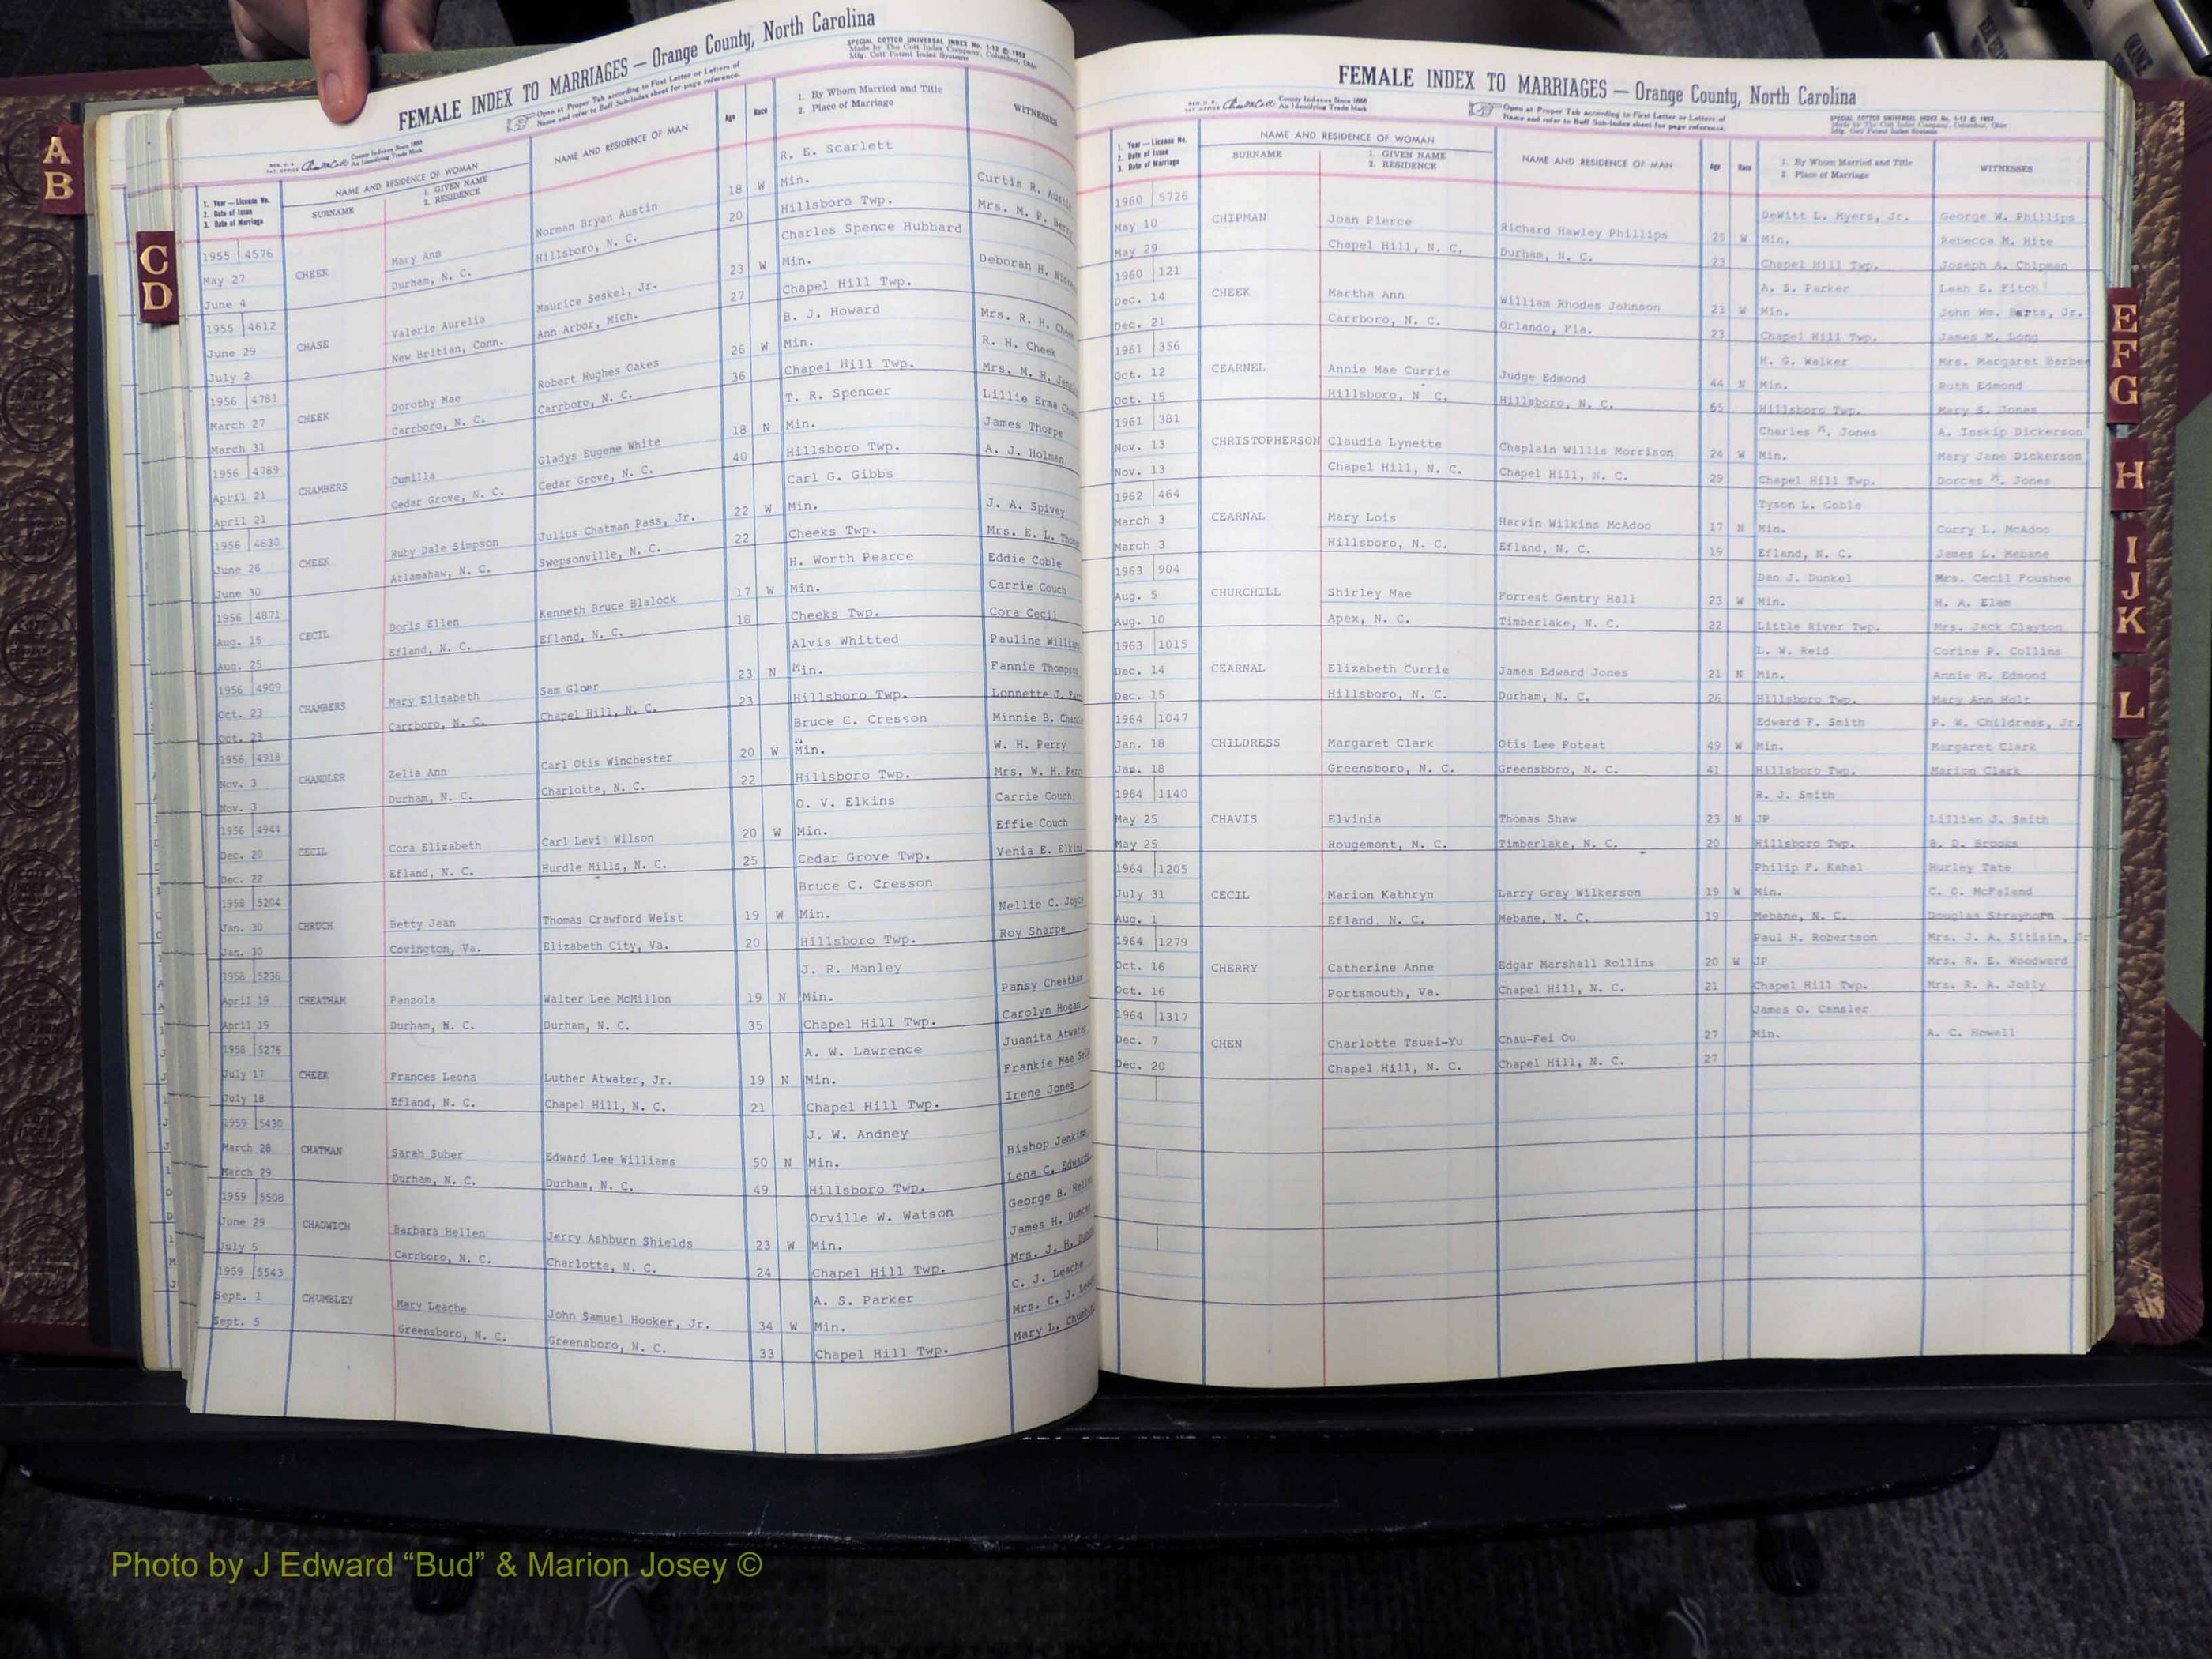 FEMALE INDEX TO MARRIAGES — Orange County, North Carolina
SPECIAL COTTCO UNIVERSAL INDEX No. 1-12 © 1952
Made by The Cott Index Company, Columbus, Ohio
Mfg. Cott Patent Index Systems
Open at Proper Tab according to First Letter or Letters of
Name and refer to Buff Sub-Index sheet for page reference.
County Indexes Since 1888
An Identifying Trade Mark
1. Year — License No.
2. Date of Issue
3. Date of Marriage
NAME AND RESIDENCE OF WOMAN
SURNAME
1. GIVEN NAME
2. RESIDENCE
NAME AND RESIDENCE OF MAN
Age
Race
1. By Whom Married and Title
2. Place of Marriage
WITNESSES
R. E. Scarlett
1955 4576 CHEEK Mary Ann Norman Bryan Austin 18 W Min. Curtis R. Austin
May 27 Durham, N. C. Hillsboro, N. C. 20 Hillsboro Twp. Mrs. M. P. Berry
June 4
Charles Spence Hubbard
1955 4612 CHASE Valerie Aurelia Maurice Seskel, Jr. 23 W Min. Deborah H.
June 29 New Britian, Conn. Ann Arbor, Mich. 27 Chapel Hill Twp.
July 2
B. J. Howard Mrs. R. H. Cheek
1956 4781 CHEEK Dorothy Mae Robert Hughes Oakes 26 W Min. R. H. Cheek
March 27 Carrboro, N. C. Carrboro, N. C. 36 Chapel Hill Twp. Mrs. M. H.
March 31
T. R. Spencer Lillie Erma
1956 4789 CHAMBERS Cumilla Gladys Eugene White 18 N Min. James Thorpe
April 21 Cedar Grove, N. C. Cedar Grove, N. C. 40 Hillsboro Twp. A. J. Holman
April 21
Carl G. Gibbs
1956 4830 CHEEK Ruby Dale Simpson Julius Chatman Pass, Jr. 22 W Min. J. A. Spivey
June 26 Atlamahaw, N. C. Swepsonville, N. C. 22 Cheeks Twp. Mrs. E. L.
June 30
H. Worth Pearce Eddie Coble
1956 4871 CECIL Doris Ellen Kenneth Bruce Blalock 17 W Min. Carrie Couch
Aug. 15 Efland, N. C. Efland, N. C. 18 Cheeks Twp. Cora Cecil
Aug. 25
Alvis Whitted Pauline
1956 4909 CHAMBERS Mary Elizabeth Sam Gloer 23 N Min. Fannie Thompson
Oct. 23 Carrboro, N. C. Chapel Hill, N. C. 23 Hillsboro Twp. Lonnette J.
Oct. 23
Bruce C. Cresson Minnie B.
1956 4918 CHANDLER Zelia Ann Carl Otis Winchester 20 W Min. W. H. Perry
Nov. 3 Durham, N. C. Charlotte, N. C. 22 Hillsboro Twp. Mrs. W. H. Perry
Nov. 3
O. V. Elkins Carrie Couch
1956 4944 CECIL Cora Elizabeth Carl Levi Wilson 20 W Min. Effie Couch
Dec. 20 Efland, N. C. Hurdle Mills, N. C. 25 Cedar Grove Twp. Venia E. Elkins
Dec. 22
Bruce C. Cresson
1958 5204 CHRUCH Betty Jean Thomas Crawford Weist 19 W Min. Nellie C. Joyce
Jan. 30 Covington, Va. Elizabeth City, Va. 20 Hillsboro Twp. Roy Sharpe
Jan. 30
J. R. Manley
1958 5236 CHEATHAM Panzola Walter Lee McMillon 19 N Min. Pansy Cheatham
April 19 Durham, N. C. Durham, N. C. 35 Chapel Hill Twp. Carolyn Hogan
April 19
A. W. Lawrence Juanita Atwater
1958 5276 CHEEK Frances Leona Luther Atwater, Jr. 19 N Min. Frankie Mae
July 17 Efland, N. C. Chapel Hill, N. C. 21 Chapel Hill Twp. Irene Jones
July 18
J. W. Andney
1959 5430 CHATMAN Sarah Suber Edward Lee Williams 50 N Min. Bishop Jenkins
March 28 Durham, N. C. Durham, N. C. 49 Hillsboro Twp. Lena C. Edwards
March 29
Orville W. Watson George B.
1959 5508 CHADWICH Barbara Hellen Jerry Ashburn Shields 23 W Min. James H. Duncan
June 29 Carrboro, N. C. Charlotte, N. C. 24 Chapel Hill Twp. Mrs. J. H.
July 5
A. S. Parker C. J. Leache
1959 5543 CHUMBLEY Mary Leache John Samuel Hooker, Jr. 34 W Min. Mrs. C. J.
Sept. 1 Greensboro, N. C. Greensboro, N. C. 33 Chapel Hill Twp. Mary L.
Sept. 5
FEMALE INDEX TO MARRIAGES — Orange County, North Carolina
County Indexes Since 1888
An Identifying Trade Mark
Open at Proper Tab according to First Letter or Letters of
Name and refer to Buff Sub-Index sheet for page reference.
SPECIAL COTTCO UNIVERSAL INDEX No. 1-12 © 1952
Made by The Cott Index Company, Columbus, Ohio
Mfg. Cott Patent Index Systems
1. Year — License No.
2. Date of Issue
3. Date of Marriage
NAME AND RESIDENCE OF WOMAN
SURNAME
1. GIVEN NAME
2. RESIDENCE
NAME AND RESIDENCE OF MAN
Age
Race
1. By Whom Married and Title
2. Place of Marriage
WITNESSES
1960 5726 DeWitt L. Myers, Jr. George W. Phillips
May 10 CHIPMAN Joan Pierce Richard Hawley Phillips 25 W Min. Rebecca M. Hite
May 29 Chapel Hill, N. C. Durham, N. C. 23 Chapel Hill Twp. Joseph A. Chipman
1960 121 A. S. Parker Leah E. Fitch
Dec. 14 CHEEK Martha Ann William Rhodes Johnson 23 W Min. John Wm. Barts, Jr.
Dec. 21 Carrboro, N. C. Orlando, Fla. 23 Chapel Hill Twp. James M. Long
1961 356 H. G. Walker Mrs. Margaret Barbe
Oct. 12 CEARNEL Annie Mae Currie Judge Edmond 44 N Min. Ruth Edmond
Oct. 15 Hillsboro, N C. Hillsboro, N. C. 65 Hillsboro Twp. Mary S. Jones
1961 381 Charles M. Jones A. Inskip Dickerson
Nov. 13 CHRISTOPHERSON Claudia Lynette Chaplain Willis Morrison 24 W Min. Mary Jane Dickerson
Nov. 13 Chapel Hill, N. C. Chapel Hill, N. C. 29 Chapel Hill Twp. Dorcas M. Jones
1962 464 Tyson L. Coble
March 3 CEARNAL Mary Lois Harvin Wilkins McAdoo 17 N Min. Curry L. McAdoo
March 3 Hillsboro, N. C. Efland, N. C. 19 Efland, N. C. James L. Mebane
1963 904 Dan J. Dunkel Mrs. Cecil Foushee
Aug. 5 CHURCHILL Shirley Mae Forrest Gentry Hall 23 W Min. H. A. Elam
Aug. 10 Apex, N. C. Timberlake, N. C. 22 Little River Twp. Mrs. Jack Clayton
1963 1015 L. W. Reid Corine P. Collins
Dec. 14 CEARNAL Elizabeth Currie James Edward Jones 21 N Min. Annie H. Edmond
Dec. 15 Hillsboro, N. C. Durham, N. C. 26 Hillsboro Twp. Mary Ann Holt
1964 1047 Edward F. Smith P. W. Childress, Jr.
Jan. 18 CHILDRESS Margaret Clark Otis Lee Poteat 49 W Min. Margaret Clark
Jan. 18 Greensboro, N. C. Greensboro, N. C. 41 Hillsboro Twp. Marion Clark
1964 1140 R. J. Smith
May 25 CHAVIS Elvinia Thomas Shaw 23 N JP Lillian J. Smith
May 25 Rougemont, N. C. Timberlake, N. C. 20 Hillsboro Twp. B. D. Brooks
1964 1205 Philip F. Kahal Hurley Tate
July 31 CECIL Marion Kathryn Larry Gray Wilkerson 19 W Min. C. O. McFaland
Aug. 1 Efland, N. C. Mebane, N. C. 19 Mebane, N. C. Douglas Strayhorn
1964 1279 Paul H. Robertson Mrs. J. A. Sitisin, Jr
Oct. 16 CHERRY Catherine Anne Edgar Marshall Rollins 20 W JP Mrs. R. E. Woodward
Oct. 16 Portsmouth, Va. Chapel Hill, N. C. 21 Chapel Hill Twp. Mrs. R. A. Jolly
1964 1317 James O. Cansler
Dec. 7 CHEN Charlotte Tsuei-Yu Chau-Fei Ou 27 Min. A. C. Howell
Dec. 20 Chapel Hill, N. C. Chapel Hill, N. C. 27
A
B
C
D
E
F
G
H
I
J
K
L
Photo by J Edward “Bud” & Marion Josey ©